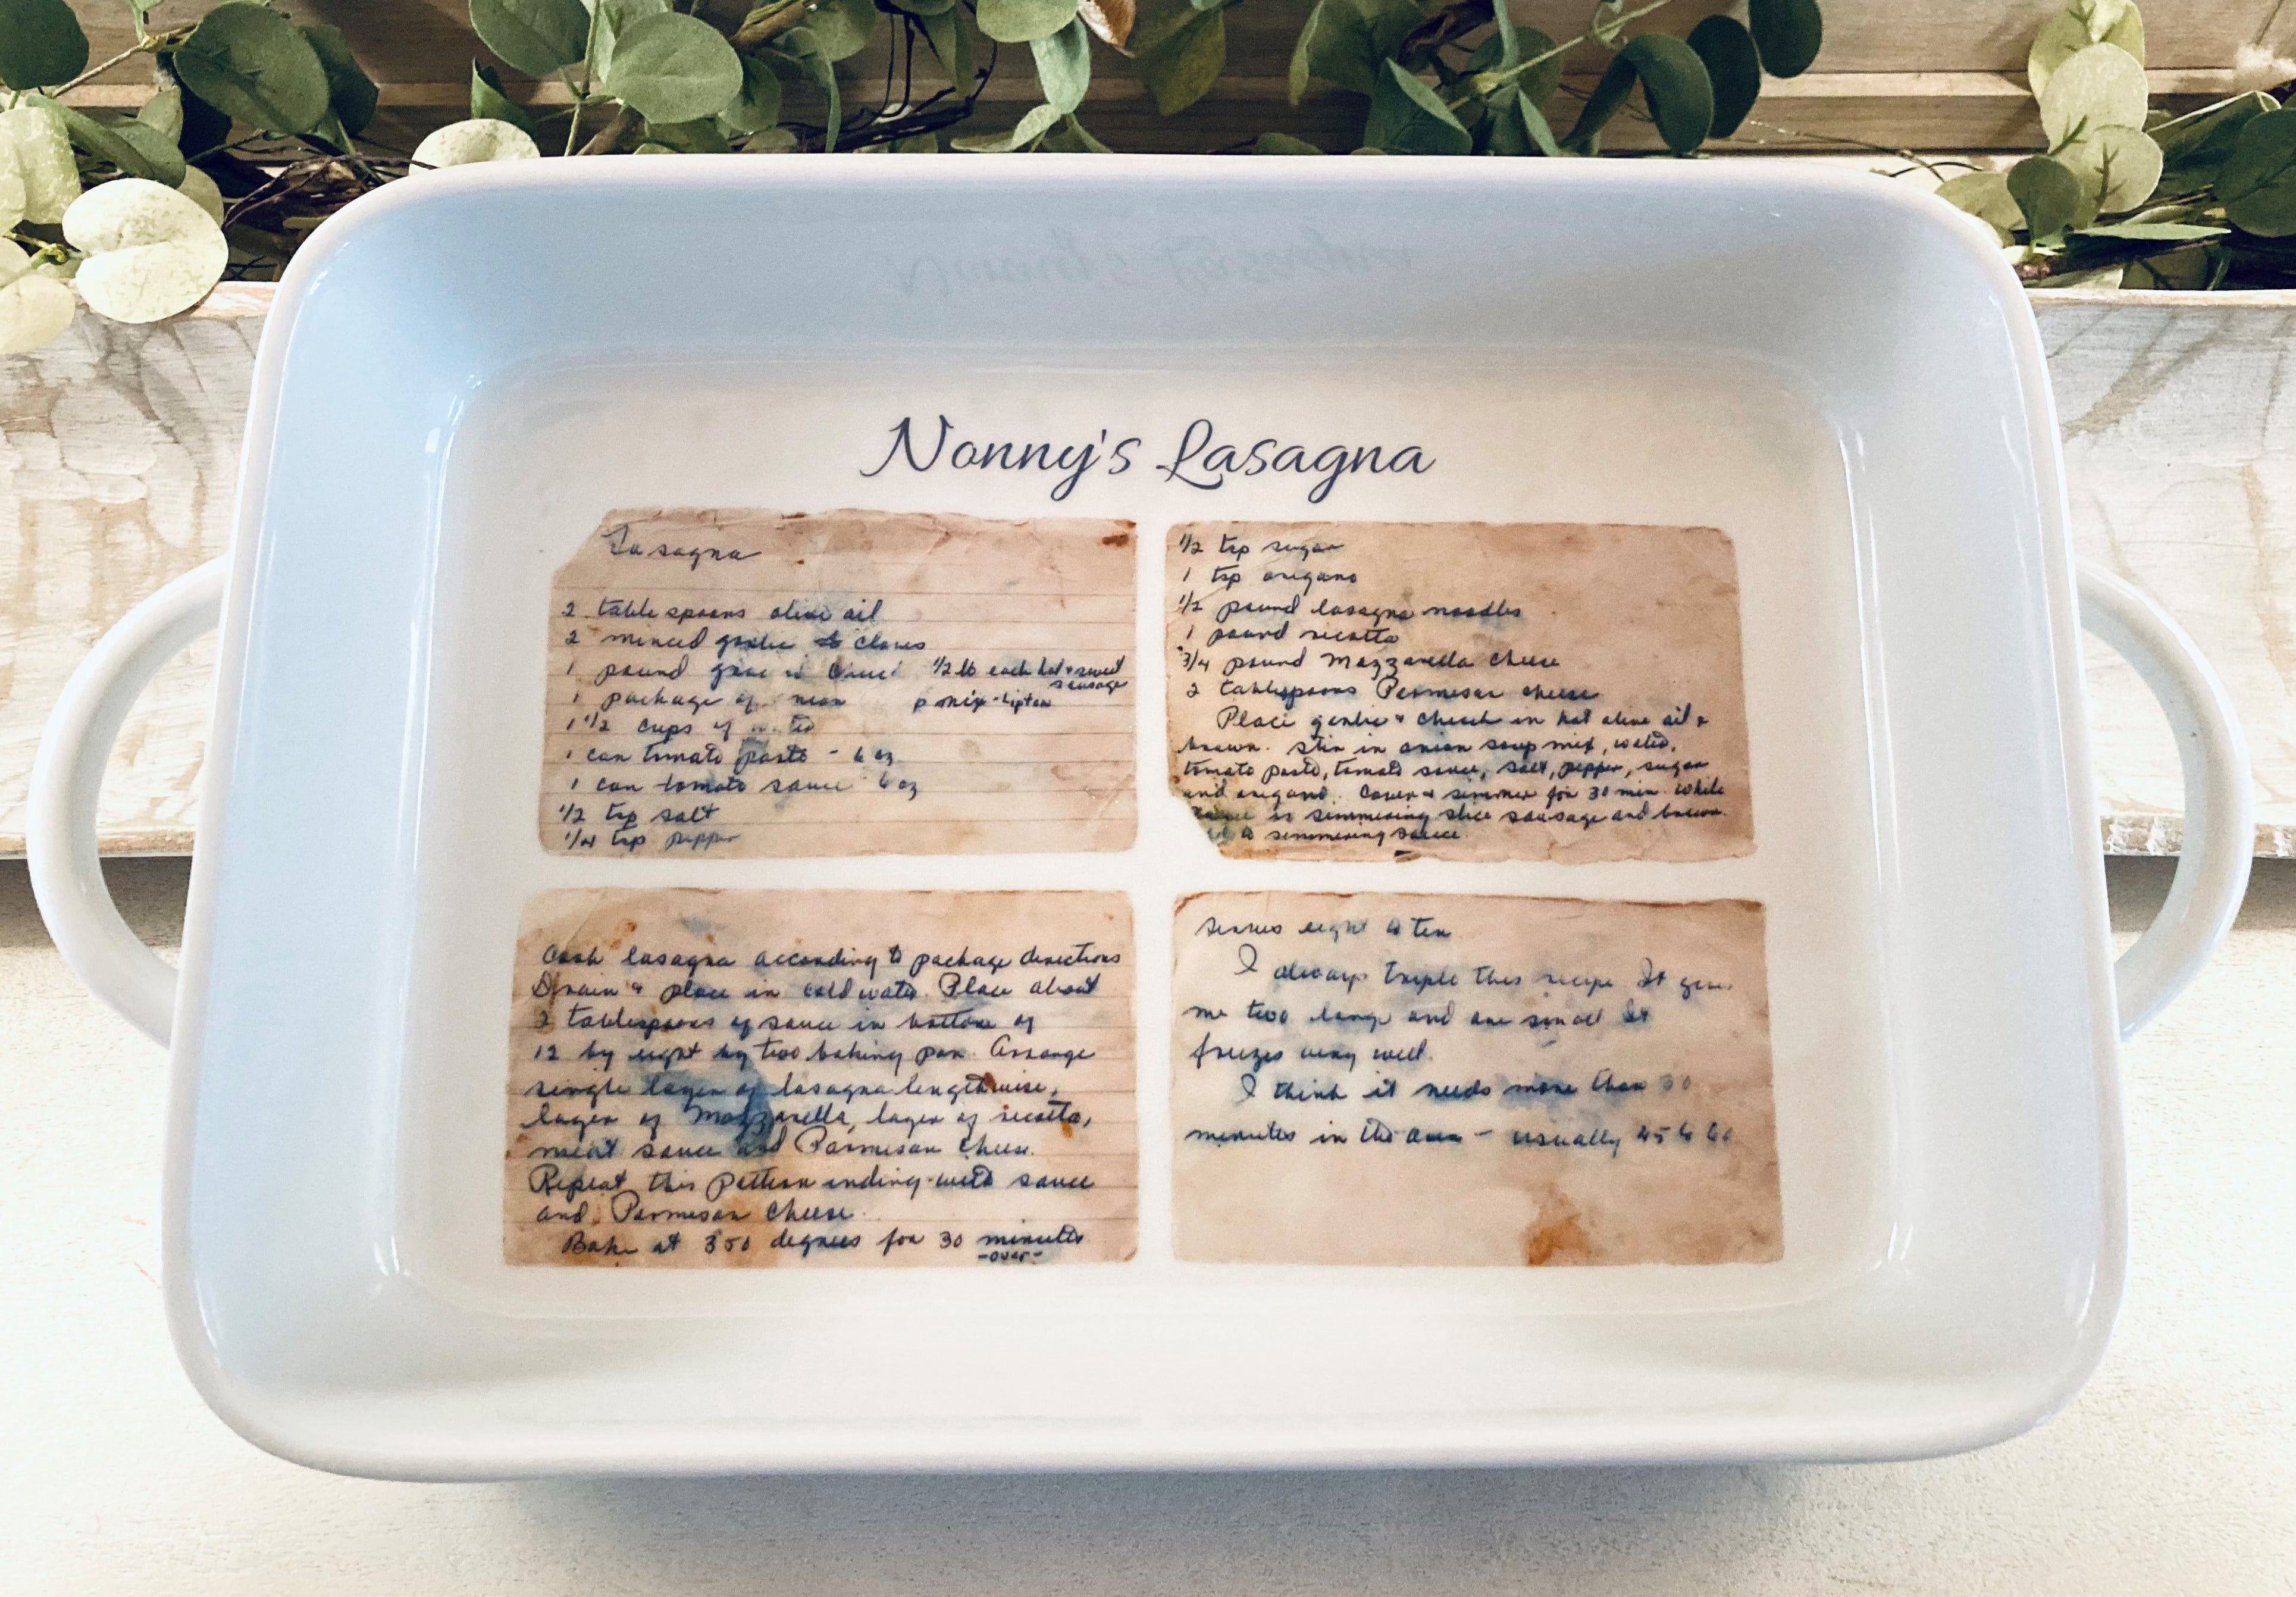 Nonny's Lasagna
Lasagna
2 tablespoons olive oil
2 minced garlic cloves
1 pound 1/2 lb each hot + sweet
sausage
1 package of mix - Lipton
1 1/2 cups of
1 can tomato paste - 6 oz
1 can tomato sauce 6 oz
1/2 tsp salt
1/4 tsp pepper
1/2 tsp sugar
1 tsp oregano
1/2 pound lasagna noodles
1 pound ricotta
3/4 pound Mozzarella cheese
2 tablespoons Parmesan cheese
Place garlic + in hot olive oil +
brown. Stir in onion soup mix, water,
tomato paste, tomato sauce, salt, pepper, sugar
and oregano. Cover + simmer for 30 min. While
is simmering slice sausage and brown.
simmering sauce.
Cook lasagna according to package directions
Drain + place in cold water. Place about
2 tablespoons of sauce in bottom of
12 by eight by two baking pan. Arrange
single layer of lasagna lengthwise,
layer of Mozzarella, layer of ricotta,
meat sauce and Parmesan cheese.
Repeat this pattern ending with sauce
and Parmesan cheese.
Bake at 350 degrees for 30 minutes
-over-
serves eight to ten
I always triple this recipe It gives
me two large and one small It
freezes very well.
I think it needs more than 30
minutes in the oven - usually 45 to 60